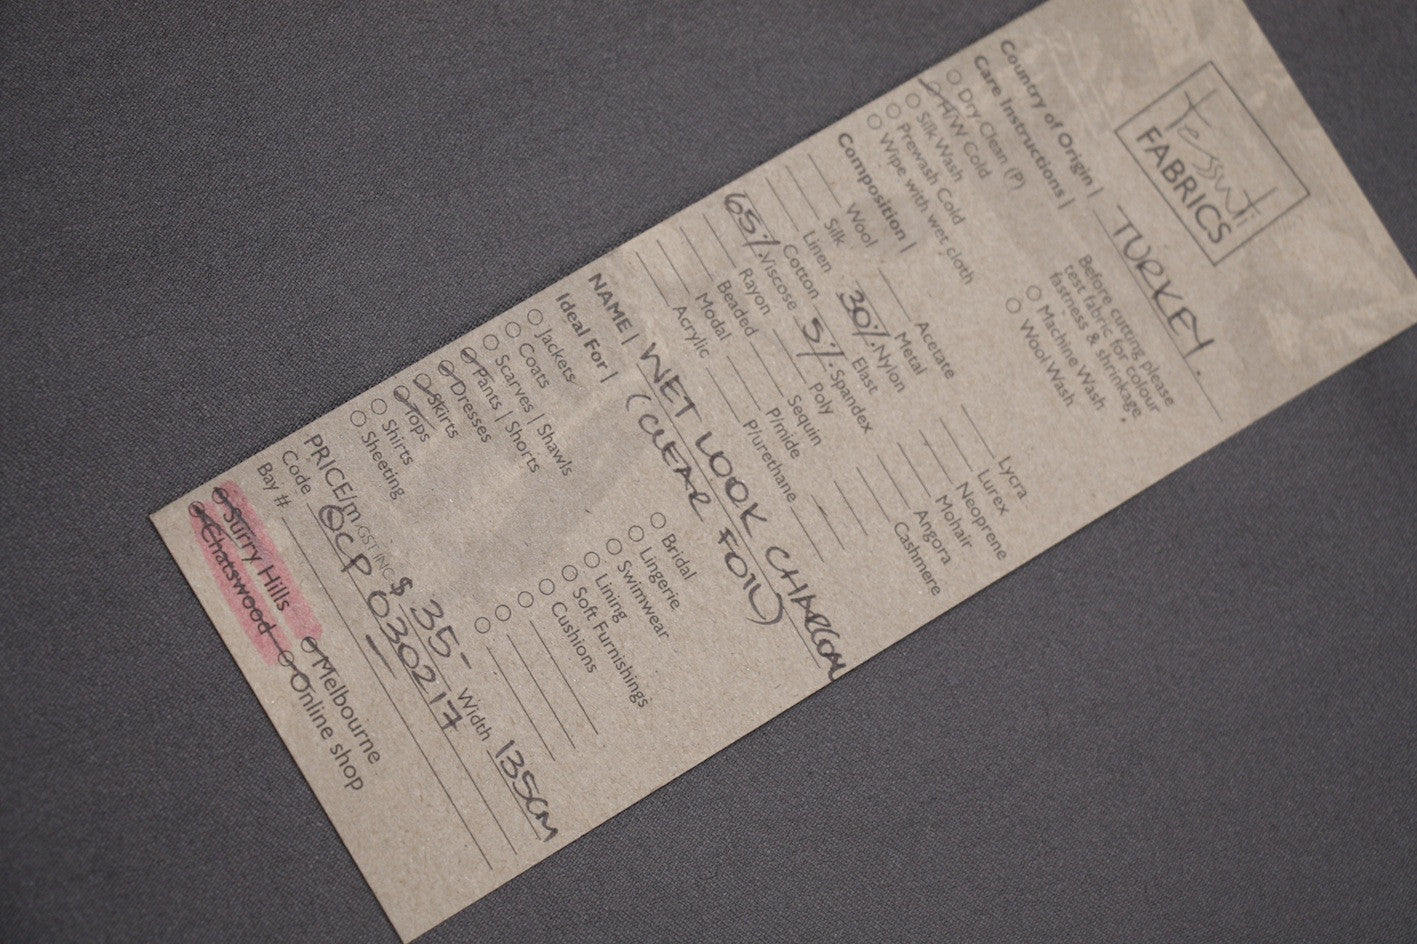 tessuti
FABRICS
Country of Origin | TURKEY.
Care Instructions |
Dry Clean (P)
H/W Cold
Silk Wash
Prewash Cold
Wipe with wet cloth
Before cutting please
test fabric for colour
fastness & shrinkage.
Machine Wash
Wool Wash
Composition |
Wool
Silk
Linen
Cotton
65% Viscose
Rayon
Beaded
Modal
Acrylic
Acetate
Metal
30% Nylon
Elast
5% Spandex
Poly
Sequin
P/mide
P/urethane
Lycra
Lurex
Neoprene
Mohair
Angora
Cashmere
NAME | WET LOOK CHARCOAL
(CLEAR FOIL)
Ideal For |
Jackets
Coats
Scarves | Shawls
Pants | Shorts
Dresses
Skirts
Tops
Shirts
Sheeting
Bridal
Lingerie
Swimwear
Lining
Soft Furnishings
Cushions
PRICE/m GST INC $ 35- Width 135cm
Code OCP 030217
Bay #
Surry Hills
Chatswood
Melbourne
Online shop